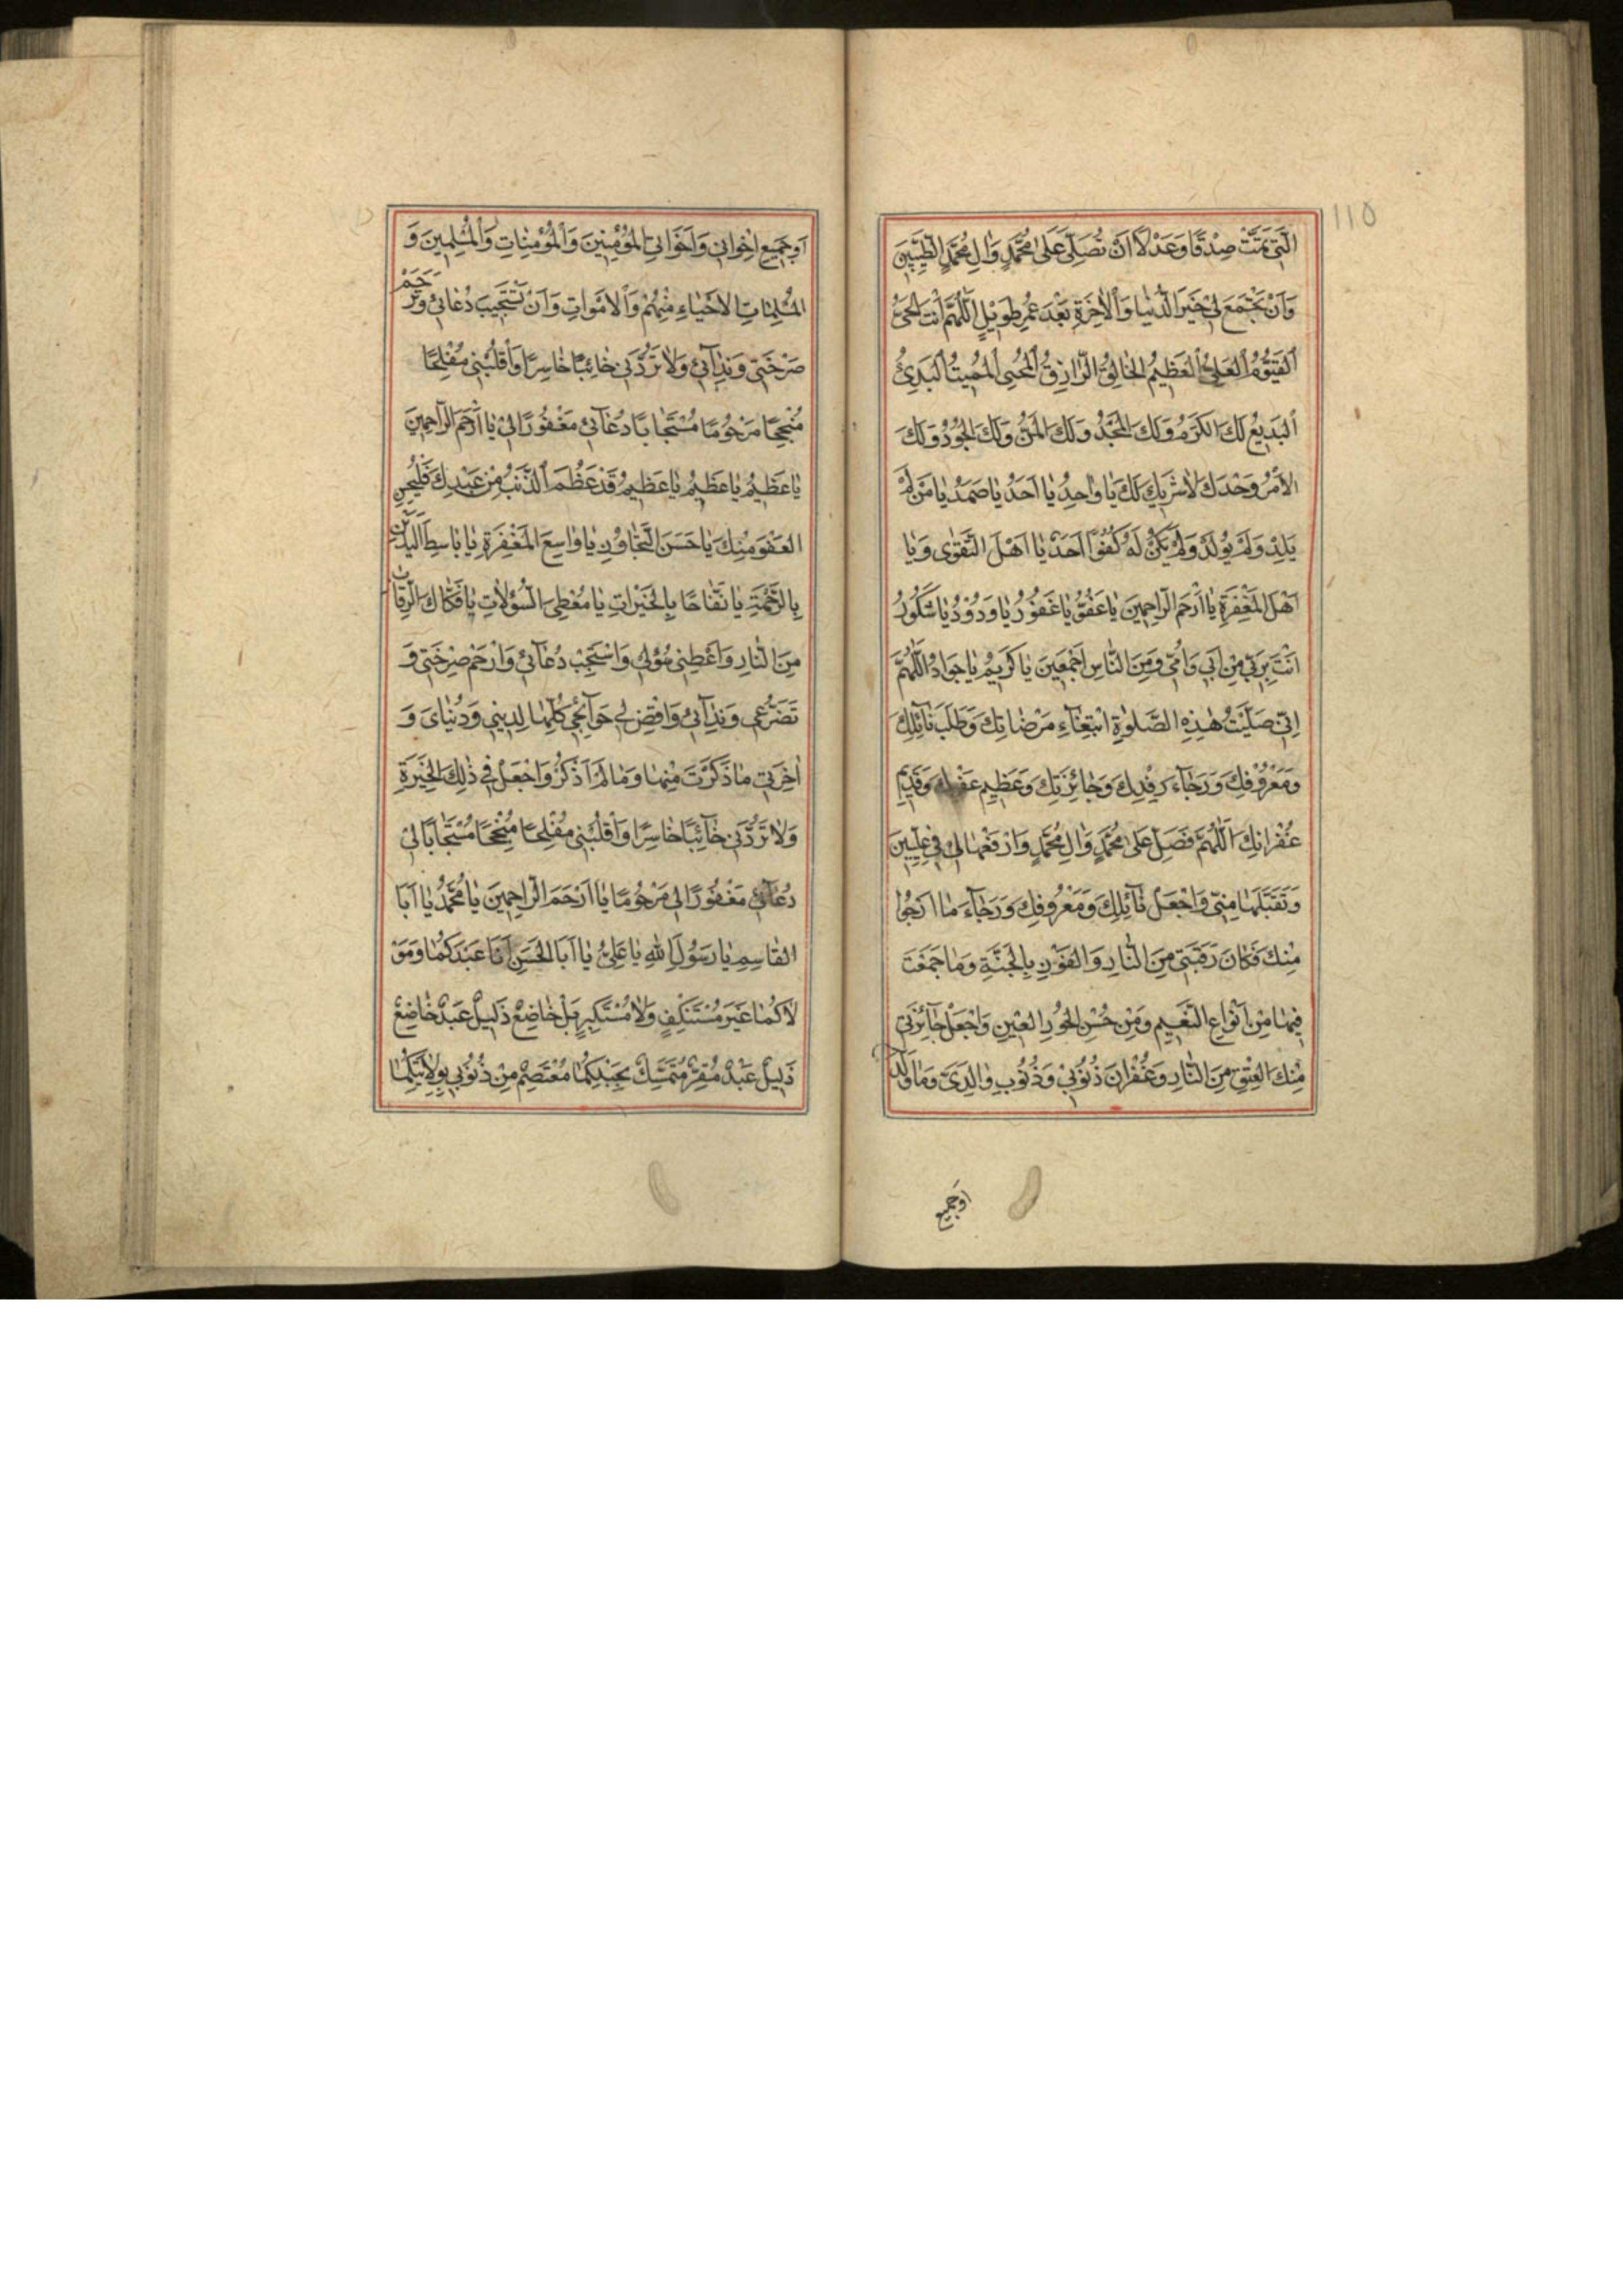 الَّتِي تَمَّتْ صِدْقًا وَعَدْلًا اَنْ تُصَلِّيَ عَلىٰ مُحَمَّدٍ وَاٰلِ مُحَمَّدٍ الطَّيِّبِينَ
وَاَنْ تَجْمَعَ لِي خَيْرَ الدُّنْيٰا وَالْاٰخِرَةِ بَعْدَ عُمُرٍ طَوِيْلٍ اَللّٰهُمَّ اَنْتَ الْحَيُّ
اَلْقَيُّوْمُ اَلْعَلِيُّ الْعَظِيْمُ الْخٰالِقُ الرَّازِقُ اَلْمُحْيِي الْمُمِيتُ اَلْبَدِيْءُ
اَلْبَدِيْعُ لَكَ الْكَرَمُ وَلَكَ الْمَجْدُ وَلَكَ الْمَنُّ وَلَكَ الْجُوْدُ وَلَكَ
الْاَمْرُ وَحْدَكَ لٰا شَرِيْكَ لَكَ يٰا وٰاحِدُ يٰا اَحَدُ يٰا صَمَدُ يٰا مَنْ لَمْ
يَلِدْ وَلَمْ يُوْلَدْ وَلَمْ يَكُنْ لَهُ كُفُوًا اَحَدٌ يٰا اَهْلَ التَّقْوٰى وَيٰا
اَهْلَ الْمَغْفِرَةِ يٰا اَرْحَمَ الرّٰاحِمِيْنَ يٰا عَفُوُّ يٰا غَفُوْرُ يٰا وَدُوْدُ يٰا شَكُوْرُ
اَنْتَ اَبَرُّ بِي مِنْ اَبِي وَاُمِّي وَمِنَ النّٰاسِ اَجْمَعِيْنَ يٰا كَرِيْمُ يٰا جَوٰادُ اَللّٰهُمَّ
اِنِّي صَلَّيْتُ هٰذِهِ الصَّلٰوةِ ابْتِغٰآءِ مَرْضٰاتِكَ وَطَلَبَ نٰآئِلِكَ
وَمَعْرُوْفِكَ وَرَجٰآءَ رِفْدِكَ وَجٰائِزَتِكَ وَعَظِيْمِ عَفْوِكَ وَقَدِيْمِ
غُفْرٰانِكَ اَللّٰهُمَّ فَصَلِّ عَلىٰ مُحَمَّدٍ وَاٰلِ مُحَمَّدٍ وَارْفَعْهٰا لِي فِي عِلِّيِّيْنَ
وَتَقَبَّلْهٰا مِنِّي وَاجْعَلْ نٰآئِلَكَ وَمَعْرُوفِكَ وَرَجٰآءَ مٰا اَرْجُوا
مِنْكَ فَكٰاكَ رَقَبَتِي مِنَ النّٰارِ وَالْفَوْزِ بِالْجَنَّةِ وَمٰا جَمَعْتَ
فِيهٰا مِنْ اَنْوٰاعِ النَّعِيْمِ وَمِنْ حُسْنِ الْحُوْرِ الْعِيْنِ وَاجْعَلْ جٰآئِزَتِي
مِنْكَ الْعِتْقَ مِنَ النّٰارِ وَغُفْرٰانَ ذُنُوْبِي وَذُنُوبِ وٰالِدَيَّ وَمٰا وَلَدٰا
اَوْ جَمِيْع
اَوْ جَمِيْعِ اِخْوٰانِي وَاَخَوٰاتِي الْمُؤْمِنِيْنَ وَالْمُؤْمِنٰاتِ وَالْمُسْلِمِيْنَ وَ
الْمُسْلِمٰاتِ الْاَحْيٰاءِ مِنْهُمْ وَالْاَمْوٰاتِ وَاَنْ تَسْتَجِيْبَ دُعٰائِي وَتَرْحَمَ
صَرْخَتِي وَنِدٰآئِي وَلٰا تَرُدَّنِي خٰائِبًا خٰاسِرًا وَاَقْلِبْنِي مُفْلِحًا
مُنْجِحًا مَرْحُوْمًا مُسْتَجٰابًا دُعٰآئِي مَغْفُوْرًا لِي يٰا اَرْحَمَ الرّٰاحِمِيْنَ
يٰا عَظِيْمُ يٰا عَظِيْمُ يٰا عَظِيْمُ قَدْ عَظُمَ الذَّنْبُ مِنْ عَبْدِكَ فَلْيَحْسُنِ
الْعَفْوُ مِنْكَ يٰا حَسَنَ التَّجٰاوُزِ يٰا وٰاسِعَ الْمَغْفِرَةِ يٰا بٰاسِطَ الْيَدَيْنِ
بِالرَّحْمَةِ يٰا نَفّٰاحًا بِالْخَيْرٰاتِ يٰا مُعْطِيَ السُّؤْلاٰتِ يٰا فَكّٰاكَ الرِّقٰابِ
مِنَ النّٰارِ وَاَعْطِنِي سُؤْلِي وَاسْتَجِبْ دُعٰآئِي وَارْحَمْ صَرْخَتِي وَ
تَضَرُّعِي وَنِدٰآئِي وَاقْضِ لِي حَوٰآئِجِي كُلَّهٰا لِدِيْنِي وَدُنْيٰايَ وَ
اٰخِرَتِي مٰا ذَكَرْتَ مِنْهٰا وَمٰا لَمْ اَذْكُرْ وَاجْعَلْ فِي ذٰلِكَ الْخِيَرَةِ
وَلٰا تَرُدَّنِي خٰآئِبًا خٰاسِرًا وَاَقْلِبْنِي مُفْلِحًا مُنْجِحًا مُسْتَجٰابًا لِي
دُعٰآئِي مَغْفُوْرًا لِي مَرْحُوْمًا يٰا اَرْحَمَ الرّٰاحِمِيْنَ يٰا مُحَمَّدُ يٰا اَبَا
الْقٰاسِمِ يٰا رَسُوْلَ اللّٰهِ يٰا عَلِيُّ يٰا اَبَا الْحَسَنِ اَنَا عَبْدُكُمٰا وَمَوْ
لاٰكُمٰا غَيْرَ مُسْتَنْكِفٍ وَلٰا مُسْتَكْبِرٍ بَلْ خٰاضِعٌ ذَلِيْلٌ عَبْدٌ خٰاضِعٌ
ذَلِيْلٌ عَبْدٌ مُقِرٌّ مُتَمَسِّكٌ بِحَبْلِكُمٰا مُعْتَصِمٌ مِنْ ذُنُوْبِي بِوِلاٰيَتِكُمٰا